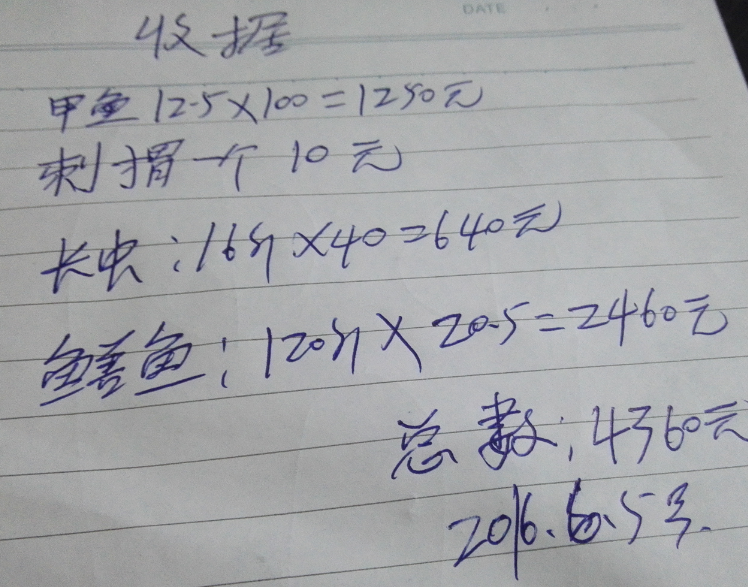 DATE
收据
甲鱼 12.5×100=1250元
刺猬一个 10元
长虫:16斤×40=640元
鳝鱼:120斤×20.5=2460元
总数:4360元
2016.6.5号.